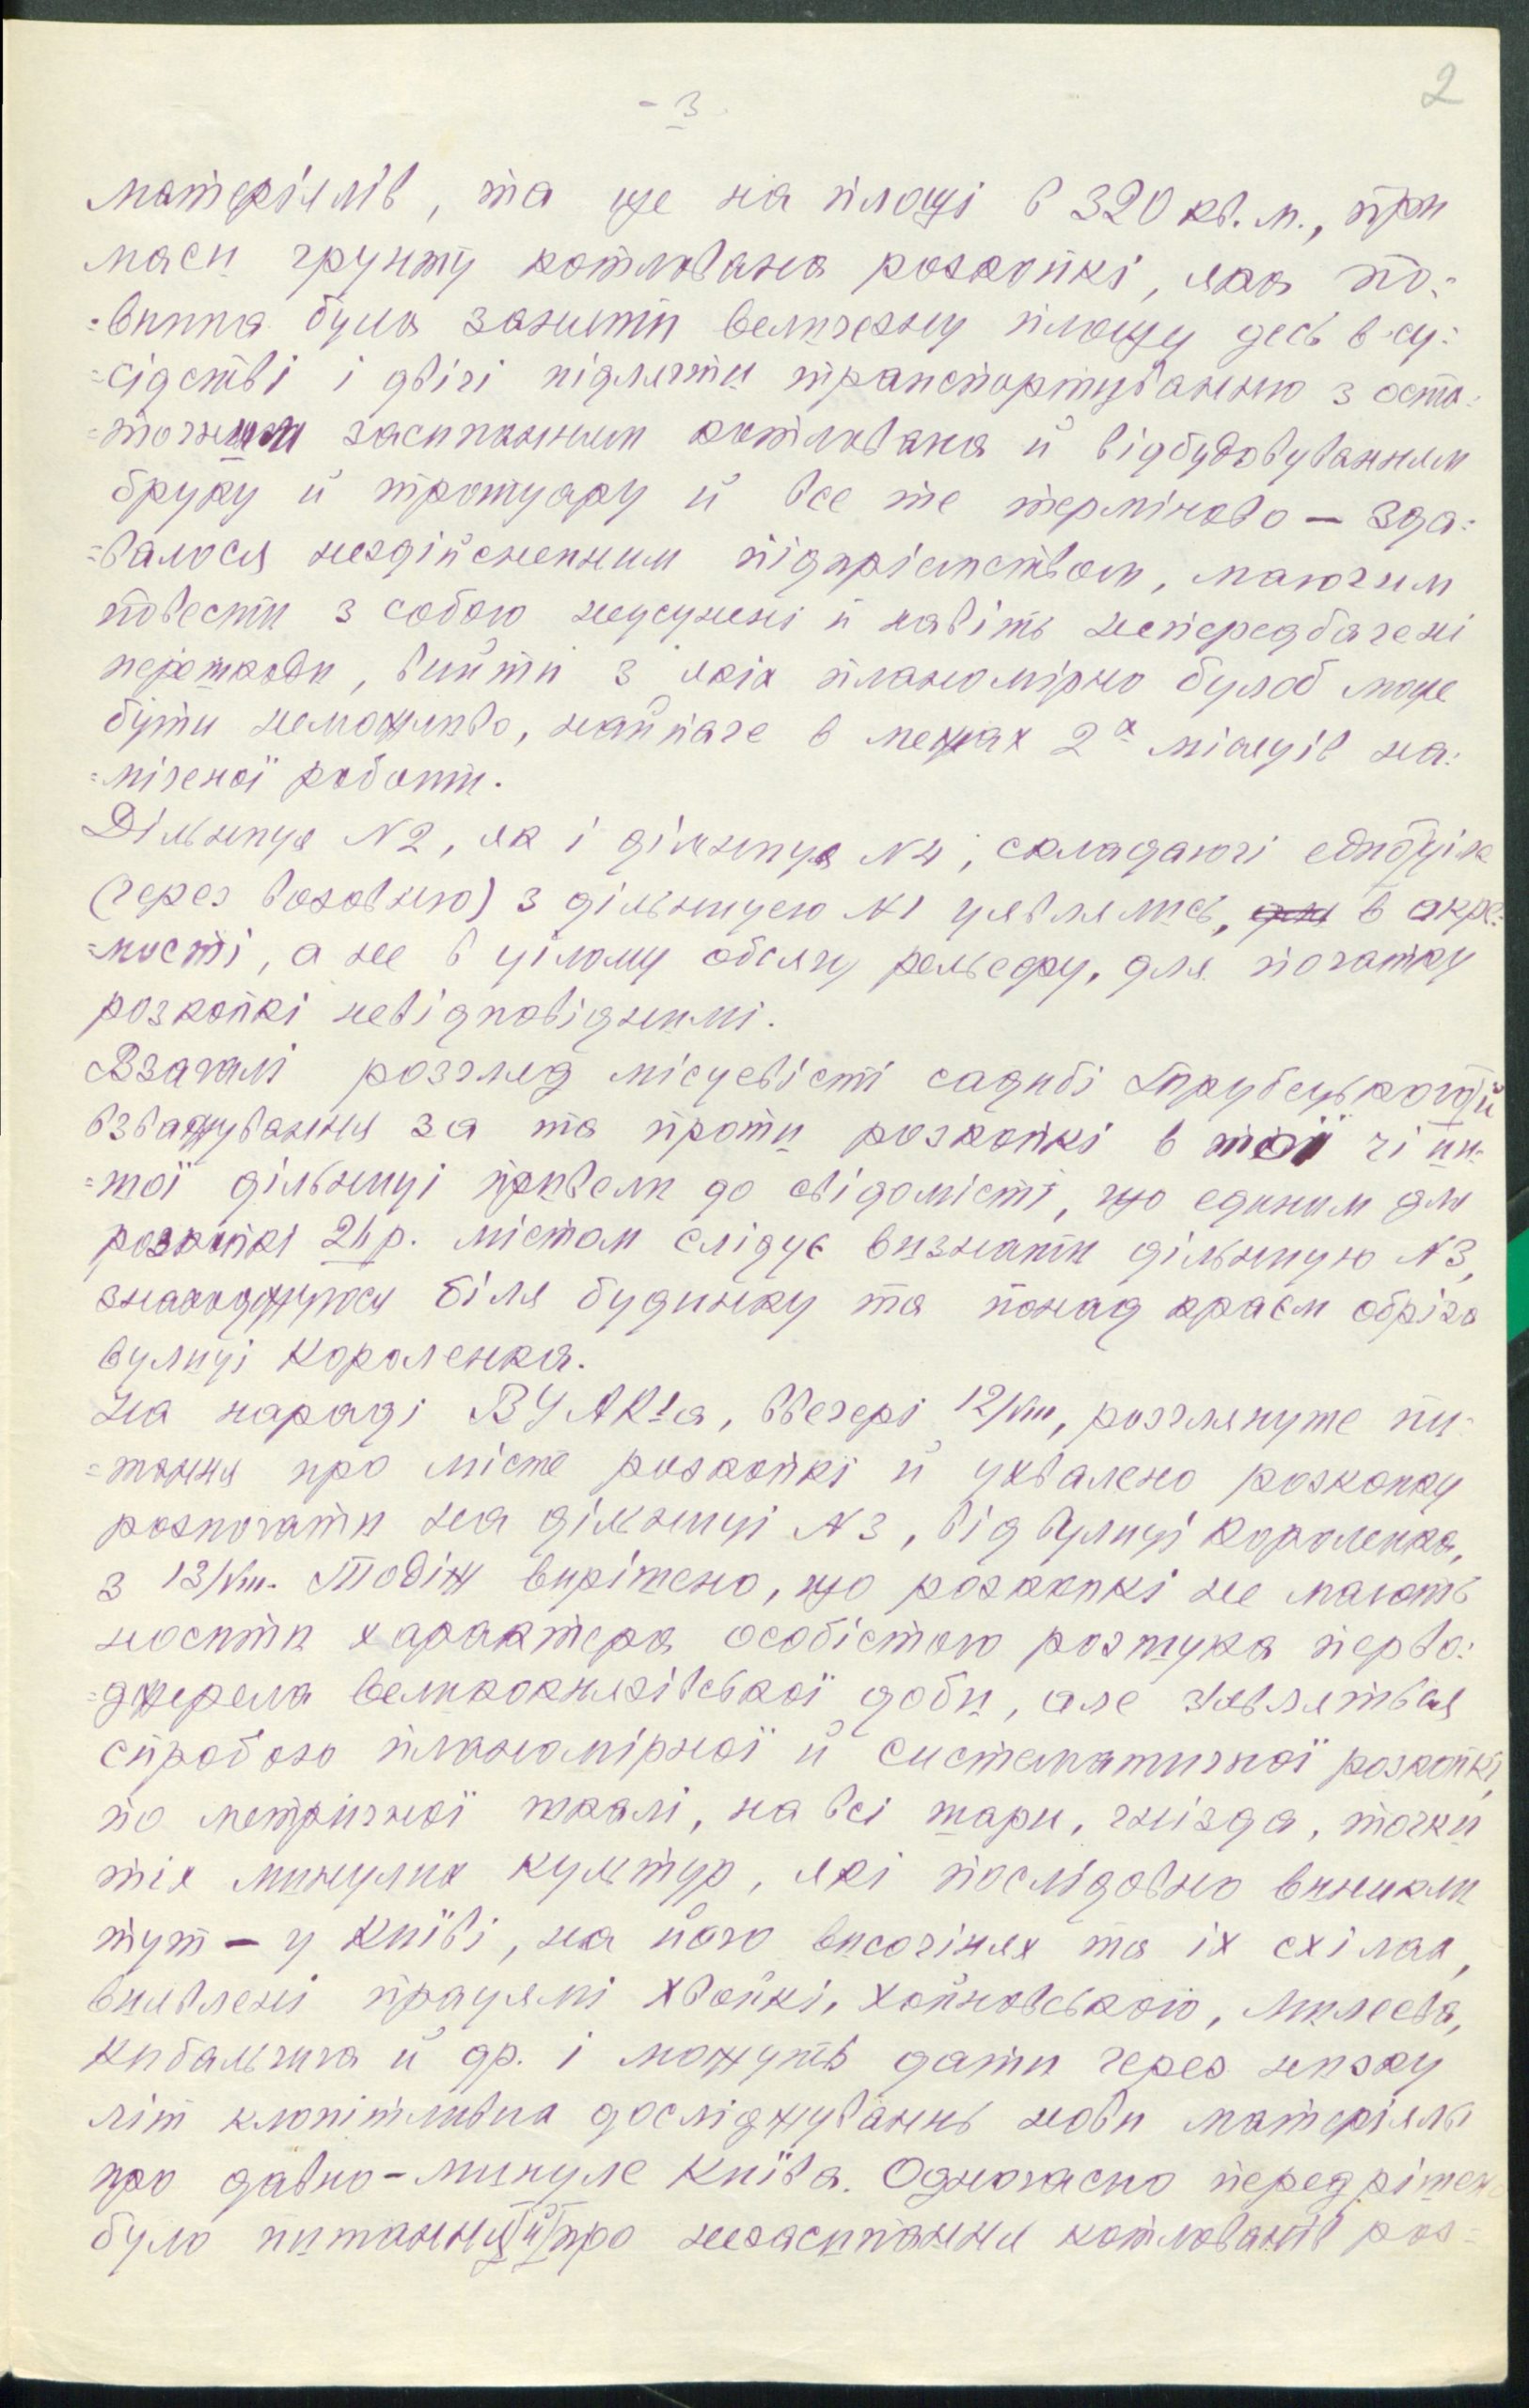 2
- 3
матеріялів, та ще на площі в 320 кв. м., при
маси грунту котлована розкопкі, яка по-
=винна була заняти величезну площу десь в су-
=сідстві і двічі підлягти транспортуванню з оста-
=точним засипанням котлована й відбудовуванням
бруку й тротуару й все те терміново — зда-
=валося нездійсненним підпріємством, маючим
повести з собою неусунені й навіть непередбачені
перешкоди, вийти з якіх планомірно булоб може
бути неможливо, найпаче в межах 2х місяців на-
=міченої работи.
Дільниця N2, як і дільниця N4, складаючі
(через возовню) з дільницею N1 уявлялись, в окре-
=мости, а не в цілому обсягу рельефу, для початку
розкопкі невідповіднимі.
Взагалі розгляд місцевісті садибі Трубецького й
взважування за та проти розкопкі в тої чі ин-
=шої дільниці привели до свідомісті, що єдиним для
розкопкі 24 р. містом слідує визнати дільницю N3,
знаходжуюся біля будинку та понад краєм обріза
вулиці Короленка.
На нараді ВУАК'а, ввечері 12/VIII, розглянуте пи-
=тання про місте розкопкі й ухвалено розкопку
розпочати на дільниці N3, від вулиці Короленка,
з 13/VIII. Тодіж вирішено, що розкопкі не мають
носити характера особістого розшука перво-
=джерела великокнязівської доби, але з'являться
спробою планомірної й систематичної розкопкі,
по метричної шкалі, на всі шари, гнізда, точки
тіх минулих культур, які послідовно виникли
тут — у Київі, на його височінях та іх схілах,
виявлені працямі Хвойкі, Хойновського, Милеєва,
Кибальчича й др. і можуть дати через низку
літ клопітливих досліджувань нови матеріяли
про давно-минуле Київа. Одночасно передрішено
було питання й про незасипання котлованів роз-